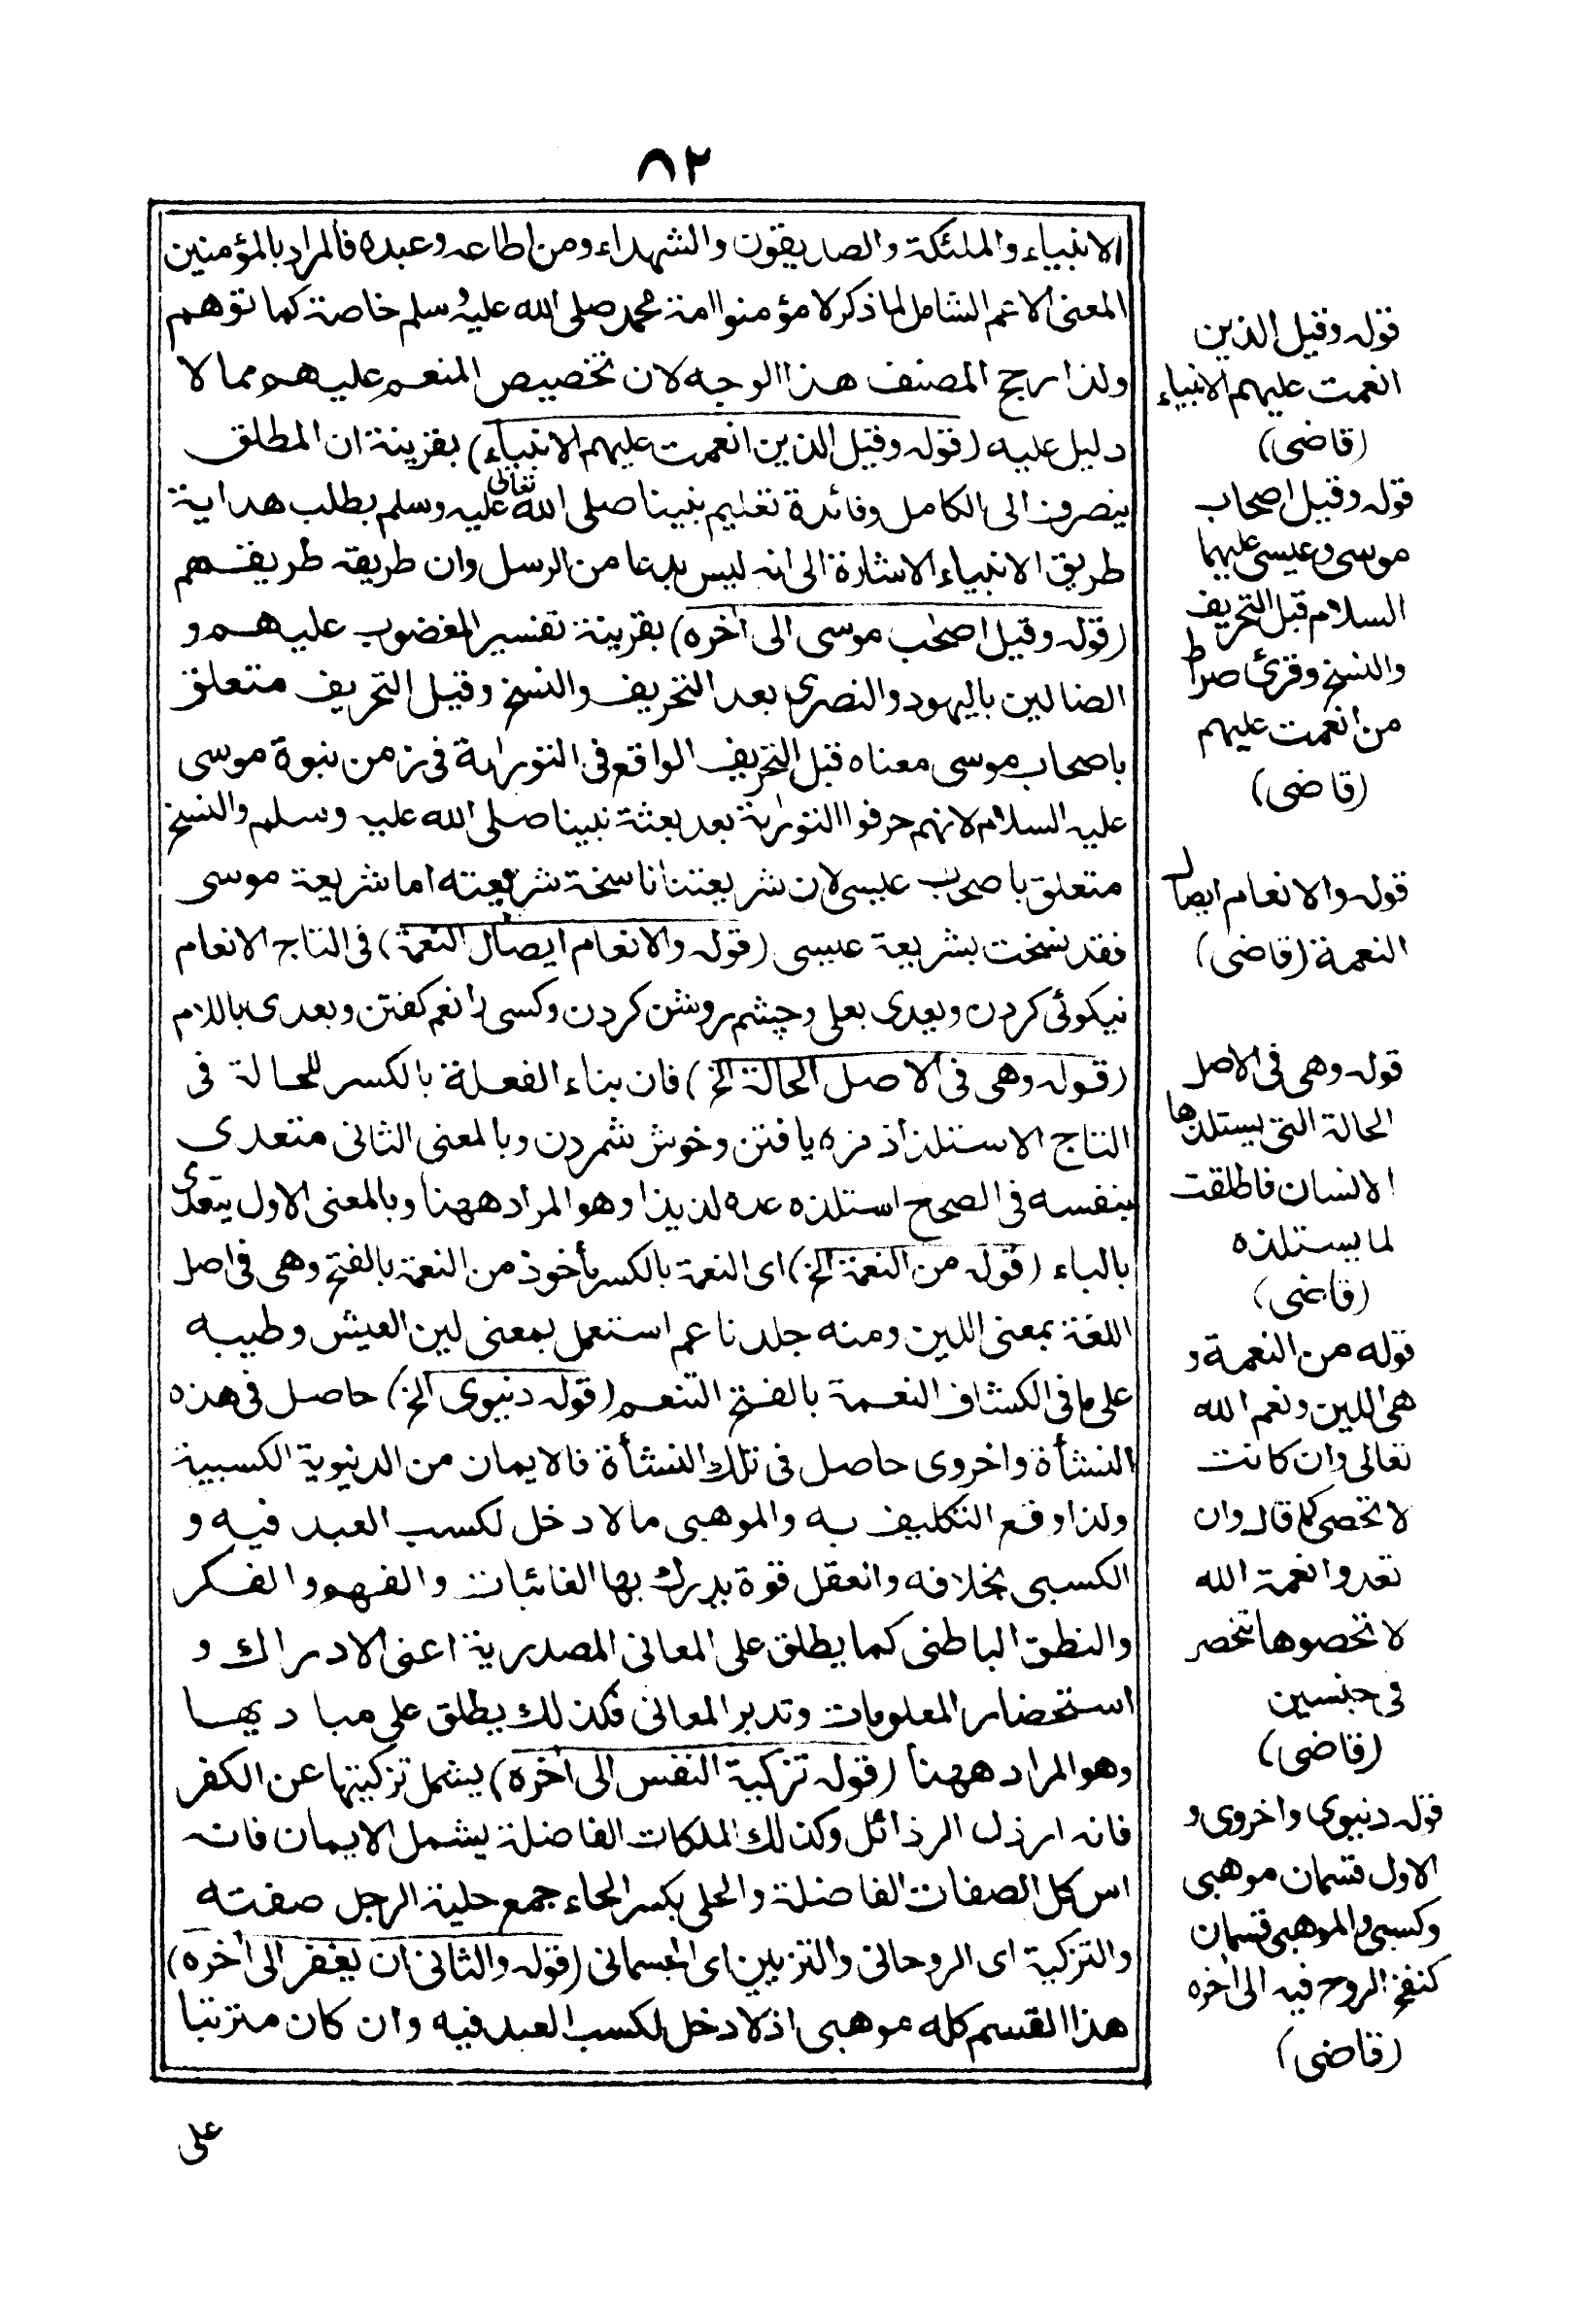 ٨٢
الانبياء والملئكة والصديقون والشهداء ومن اطاعه وعبده فالمراد بالمؤمنين
المعنى الاعم الشامل لما ذكر لا مؤمنوا امة محمد صلى الله عليه وسلم خاصة كما توهم
ولذا رجح المصنف هذا الوجه لان تخصيص المنعم عليهم مما لا
دليل عليه (قوله وقيل الذين انعمت عليهم الانبياء) بقرينة ان المطلق
ينصرف الى الكامل وفائدة تعليم نبينا صلى الله تعالى عليه وسلم بطلب هداية
طريق الانبياء الاشارة الى انه ليس بدعا من الرسل وان طريقه طريقهم
(قوله وقيل اصحٰب موسى الى اخره) بقرينة تفسير المغضوب عليهم و
الضالين باليهود والنصرى بعد التحريف والنسخ وقبل التحريف متعلق
باصحاب موسى معناه قبل التحريف الواقع فى التورٰية فى زمن نبوة موسى
عليه السلام لانهم حرفوا التورٰية بعد بعثة نبينا صلى الله عليه وسلم والنسخ
متعلق باصحٰب عيسى لان شريعتنا ناسخة شريعته اما شريعة موسى
فقد نسخت بشريعة عيسى (قوله والانعام ايصال النعمة) فى التاج الانعام
نيكوئى كردن ويعدى بعلى وچشم روشن كردن وكسى را نعم كفتن ويعدى باللام
(قوله وهى فى الاصل الحالة الخ) فان بناء الفعلة بالكسر للحالة فى
التاج الاستلذاذ مزه يافتن وخوش شمردن وبالمعنى الثانى متعدى
بنفسه فى الصحح استلذه عده لذيذا وهو المراد ههنا وبالمعنى الاول يتعدى
بالباء (قوله من النعمة الخ) اى النعمة بالكسر مأخوذ من النعمة بالفتح وهى فى اصل
اللغة بمعنى اللين ومنه جلد ناعم استعمل بمعنى لين العيش وطيبه
على ما فى الكشاف النعمة بالفتح التنعم (قوله دنيوى الخ) حاصل فى هذه
النشأة واخروى حاصل فى تلك النشأة فالايمان من الدنيوية الكسبية
ولذا وقع التكليف به والموهبى ما لا دخل لكسب العبد فيه و
الكسبى بخلافه وانعقل قوة يدرك بها الغائبات والفهم والفكر
والنطق الباطنى كما يطلق على المعانى المصدرية اعنى الادراك و
استحضار المعلومات وتدبر المعانى فكذلك يطلق على مباديها
وهو المراد ههنا (قوله تزكية النفس الى اخره) يشمل تزكيتها عن الكفر
فانه ارذل الرذائل وكذلك الملكات الفاضلة يشمل الايمان فانه
اس كل الصفات الفاضلة والحلى بكسر الحاء جمع حلية الرجل صفته
والتزكية اى الروحانى والتزيين اى الجسمانى (قوله والثانى ان يغفر الى اخره)
هذا القسم كله موهبى اذ لا دخل لكسب العبد فيه وان كان مترتبا
على
قوله وقيل الذين
انعمت عليهم الانبياء
(قاضى)
قوله وقيل اصحاب
موسى وعيسى عليهما
السلام قبل التحريف
والنسخ وقرئ صراط
من انعمت عليهم
(قاضى)
قوله والانعام ايصال
النعمة (قاضى)
قوله وهى فى الاصل
الحالة التى يستلذها
الانسان فاطلقت
لما يستلذه
(قاضى)
قوله من النعمة و
هى اللين ونعم الله
تعالى وان كانت
لا تحصى كما قال وان
تعدوا نعمة الله
لا تحصوها تنحصر
فى جنسين
(قاضى)
قوله دنيوى واخروى و
الاول قسمان موهبى
وكسبى والموهبى قسمان
كنفخ الروح فيه الى اخره
(قاضى)